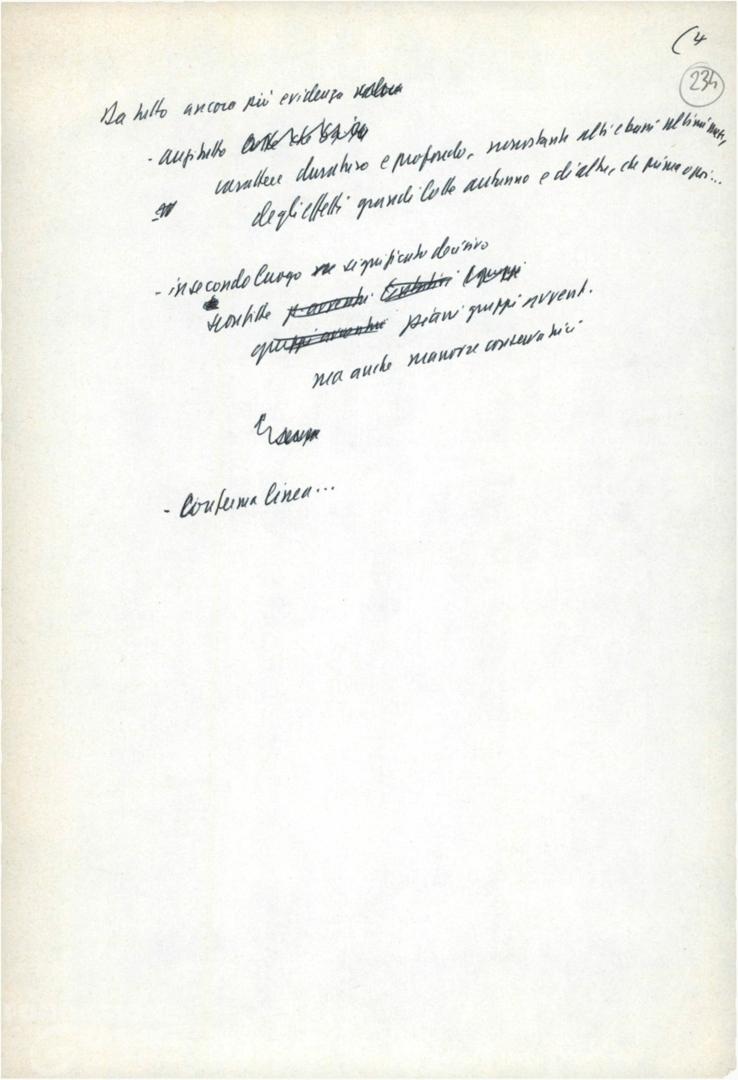 (4
234
Da tutto ancora più evidenza
- anzitutto
carattere duraturo e profondo, nonostante alti e bassi ultimi mesi,
degli effetti grandi lotte autunno e di altre, che prima e poi...
- in secondo luogo significato decisivo
sconfitte
piani gruppi avvent.
ma anche manovre conservatrici
- Conferma linea...